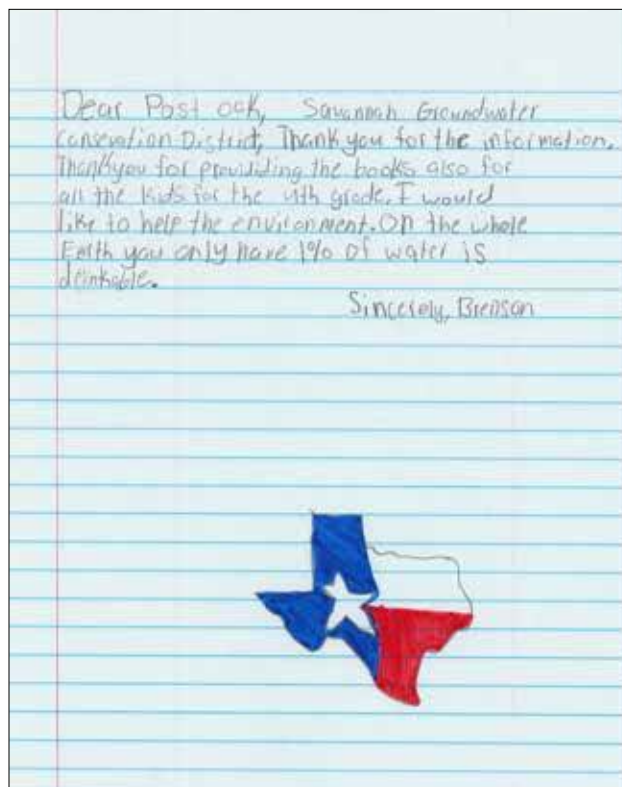 Dear Post oak, Savannah Groundwater
Consevation District, Thank you for the information.
Thank you for provididing the books also for
all the kids for the 4th grade. I would
like to help the environment. On the whole
Earth you only have 1% of water is
drinkable.
Sincerely, Brenson